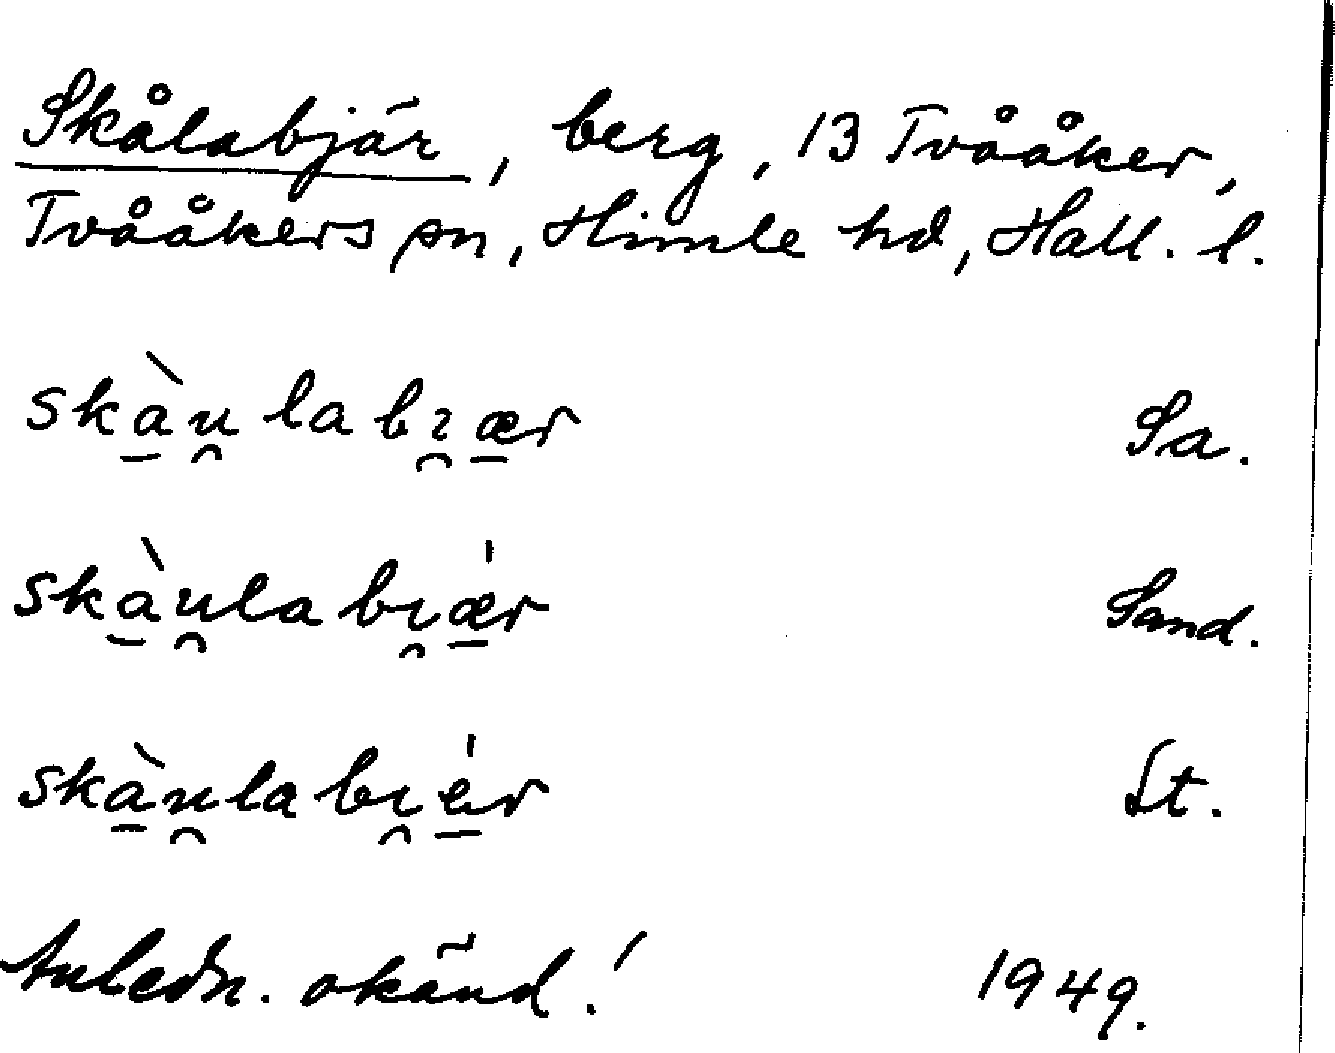 Skålabjär, berg, 13 Tvååker,
Tvååkers sn, Himle hd, Hall. l.
skà̱u̯labɪ̯æ̱r Sa.
skà̱u̯labɪ̯ǽ̱r Sand.
skà̱u̯labɪ̯é̱r St.
Anledn. okänd.! 1949.